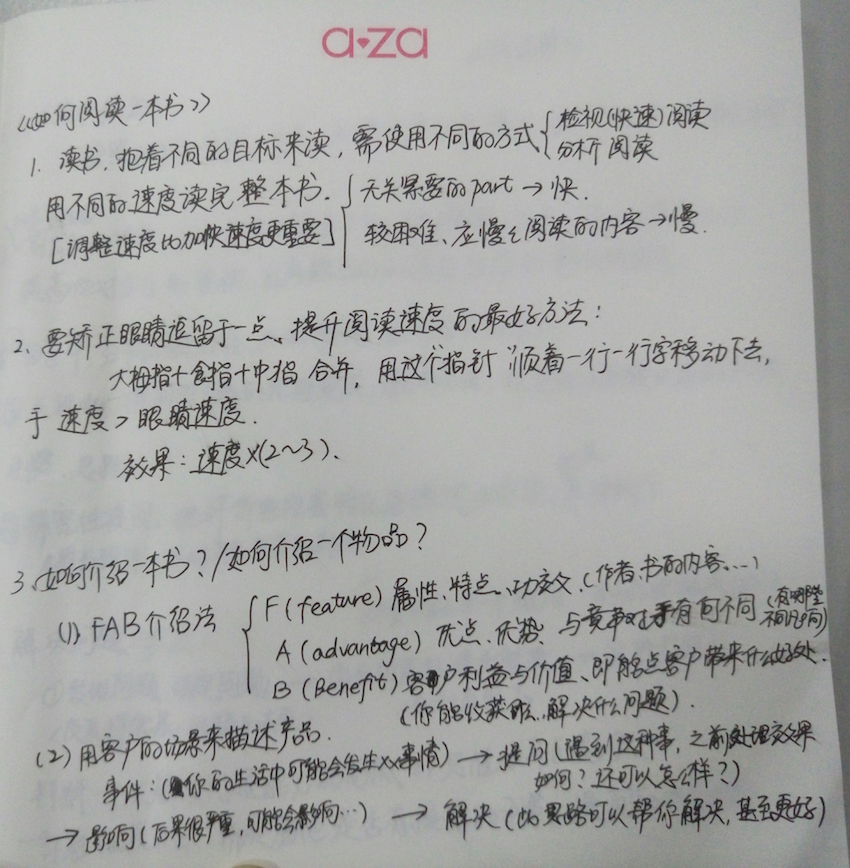 a·za
《如何阅读一本书》
1. 读书,抱着不同的目标来读,需使用不同的方式{检视(快速)阅读
分析阅读
用不同的速度读完整本书.{无关紧要的part→快.
[调整速度比加快速度更重要] 较困难、应慢慢阅读的内容→慢.
2、要矫正眼睛逗留于一点、提升阅读速度的最好方法:
大拇指+食指+中指 合并,用这个"指针"顺着一行一行字移动下去,
手速度>眼睛速度.
效果:速度×(2~3).
3、如何介绍一本书?/如何介绍一个物品?
(1) FAB介绍法 { F(feature) 属性、特点、功效、(作者、书的内容...)
A(advantage) 优点、优势、与竞争对手有何不同(有哪些不同)
B(Benefit) 客户利益与价值、即能给客户带来什么好处.
(你能收获什么、解决什么问题).
(2) 用客户的场景来描述产品.
事件:(你的生活中可能会发生××事情)→提问(遇到这种事,之前处理效果
如何?还可以怎么样?)
→影响(后果很严重,可能会影响...) → 解决(此思路可以帮你解决,甚至更好)